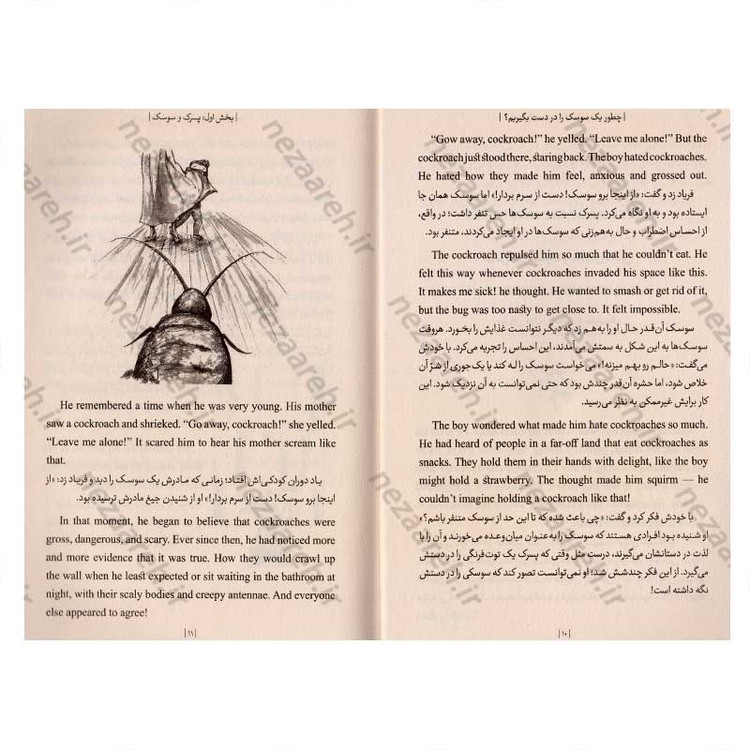 | چطور یک سوسک را در دست بگیریم؟ |
“Gow away, cockroach!” he yelled. “Leave me alone!” But the
cockroach just stood there, staring back. The boy hated cockroaches.
He hated how they made him feel, anxious and grossed out.
فریاد زد و گفت: «از اینجا برو سوسک! دست از سرم بردار!» اما سوسک همان جا
ایستاده بود و به او نگاه می‌کرد. پسرک نسبت به سوسک‌ها حس تنفر داشت؛ در واقع،
از احساس اضطراب و حال به‌هم‌زنی که سوسک‌ها در او ایجاد می‌کردند، متنفر بود.
The cockroach repulsed him so much that he couldn’t eat. He
felt this way whenever cockroaches invaded his space like this.
It makes me sick! he thought. He wanted to smash or get rid of it,
but the bug was too nasty to get close to. It felt impossible.
سوسک آن‌قدر حال او را به‌هم زد که دیگر نتوانست غذایش را بخورد. هروقت
سوسک‌ها به این شکل به سمتش می‌آمدند، این احساس را تجربه می‌کرد. با خودش
می‌گفت: «حالم رو بهم میزنه!» می‌خواست سوسک را له کند یا یک جوری از شرّ آن
خلاص شود، اما حشره آن‌قدر چندش بود که حتی نمی‌توانست به آن نزدیک شود. این
کار برایش غیرممکن به نظر می‌رسید.
The boy wondered what made him hate cockroaches so much.
He had heard of people in a far-off land that eat cockroaches as
snacks. They hold them in their hands with delight, like the boy
might hold a strawberry. The thought made him squirm — he
couldn’t imagine holding a cockroach like that!
با خودش فکر کرد و گفت: «چی باعث شده که تا این حد از سوسک متنفر باشم؟»
او شنیده بود افرادی هستند که سوسک را به عنوان میان‌وعده می‌خورند و آن را با
لذت در دستانشان می‌گیرند، درست مثل وقتی که پسرک یک توت‌فرنگی را در دستش
می‌گیرد. از این فکر چندشش شد؛ او نمی‌توانست تصور کند که سوسکی را در دستش
نگه داشته است!
| ۱۰ |
| بخش اول: پسرک و سوسک |
He remembered a time when he was very young. His mother
saw a cockroach and shrieked. “Go away, cockroach!” she yelled.
“Leave me alone!” It scared him to hear his mother scream like
that.
یاد دوران کودکی‌اش افتاد؛ زمانی که مادرش یک سوسک را دید و فریاد زد: «از
اینجا برو سوسک! دست از سرم بردار!» او از شنیدن جیغ مادرش ترسیده بود.
In that moment, he began to believe that cockroaches were
gross, dangerous, and scary. Ever since then, he had noticed more
and more evidence that it was true. How they would crawl up
the wall when he least expected or sit waiting in the bathroom at
night, with their scaly bodies and creepy antennae. And everyone
else appeared to agree!
| ۱۱ |
nezaareh.ir